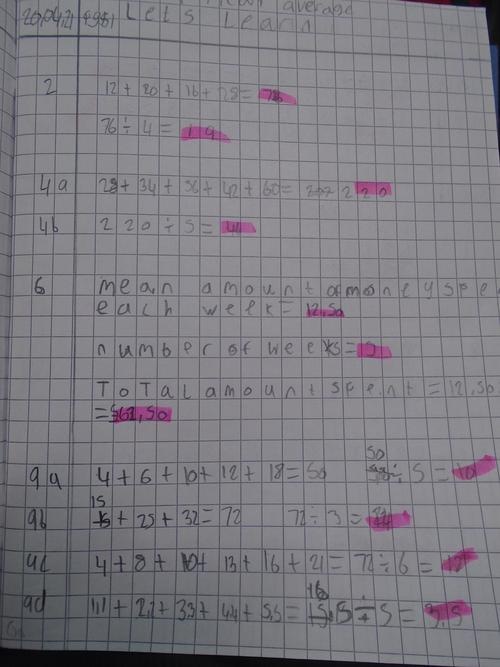 average
26.04.21 Let's Learn
2 12 + 20 + 16 + 28 = 76
76 ÷ 4 = 19
4a 28 + 34 + 56 + 42 + 60 = 220
4b 220 ÷ 5 = 44
6 mean amount of money spe
each week = 12,50
number of weeks = 5
Total amount spent = 12,50
= 62,50
9a 4 + 6 + 10 + 12 + 18 = 50 50 ÷ 5 = 10
9b 15 + 25 + 32 = 72 72 ÷ 3 = 24
9c 4 + 8 + 10 + 13 + 16 + 21 = 72 ÷ 6 = 12
9d 1,1 + 2,2 + 3,3 + 4,4 + 5,5 = ÷ 5 = 3,5